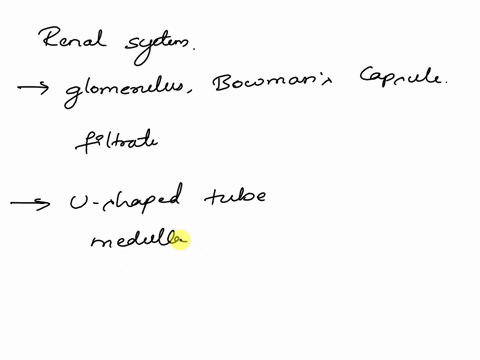 Renal system.
→ glomerulus, Bowman's Capsule.
filtrate
→ U-shaped tube
medulla